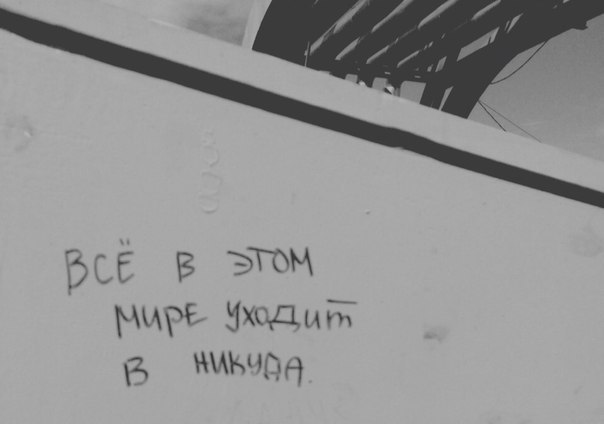 ВСЁ В ЭТОМ
МИРЕ УХОДИТ
В НИКУДА.